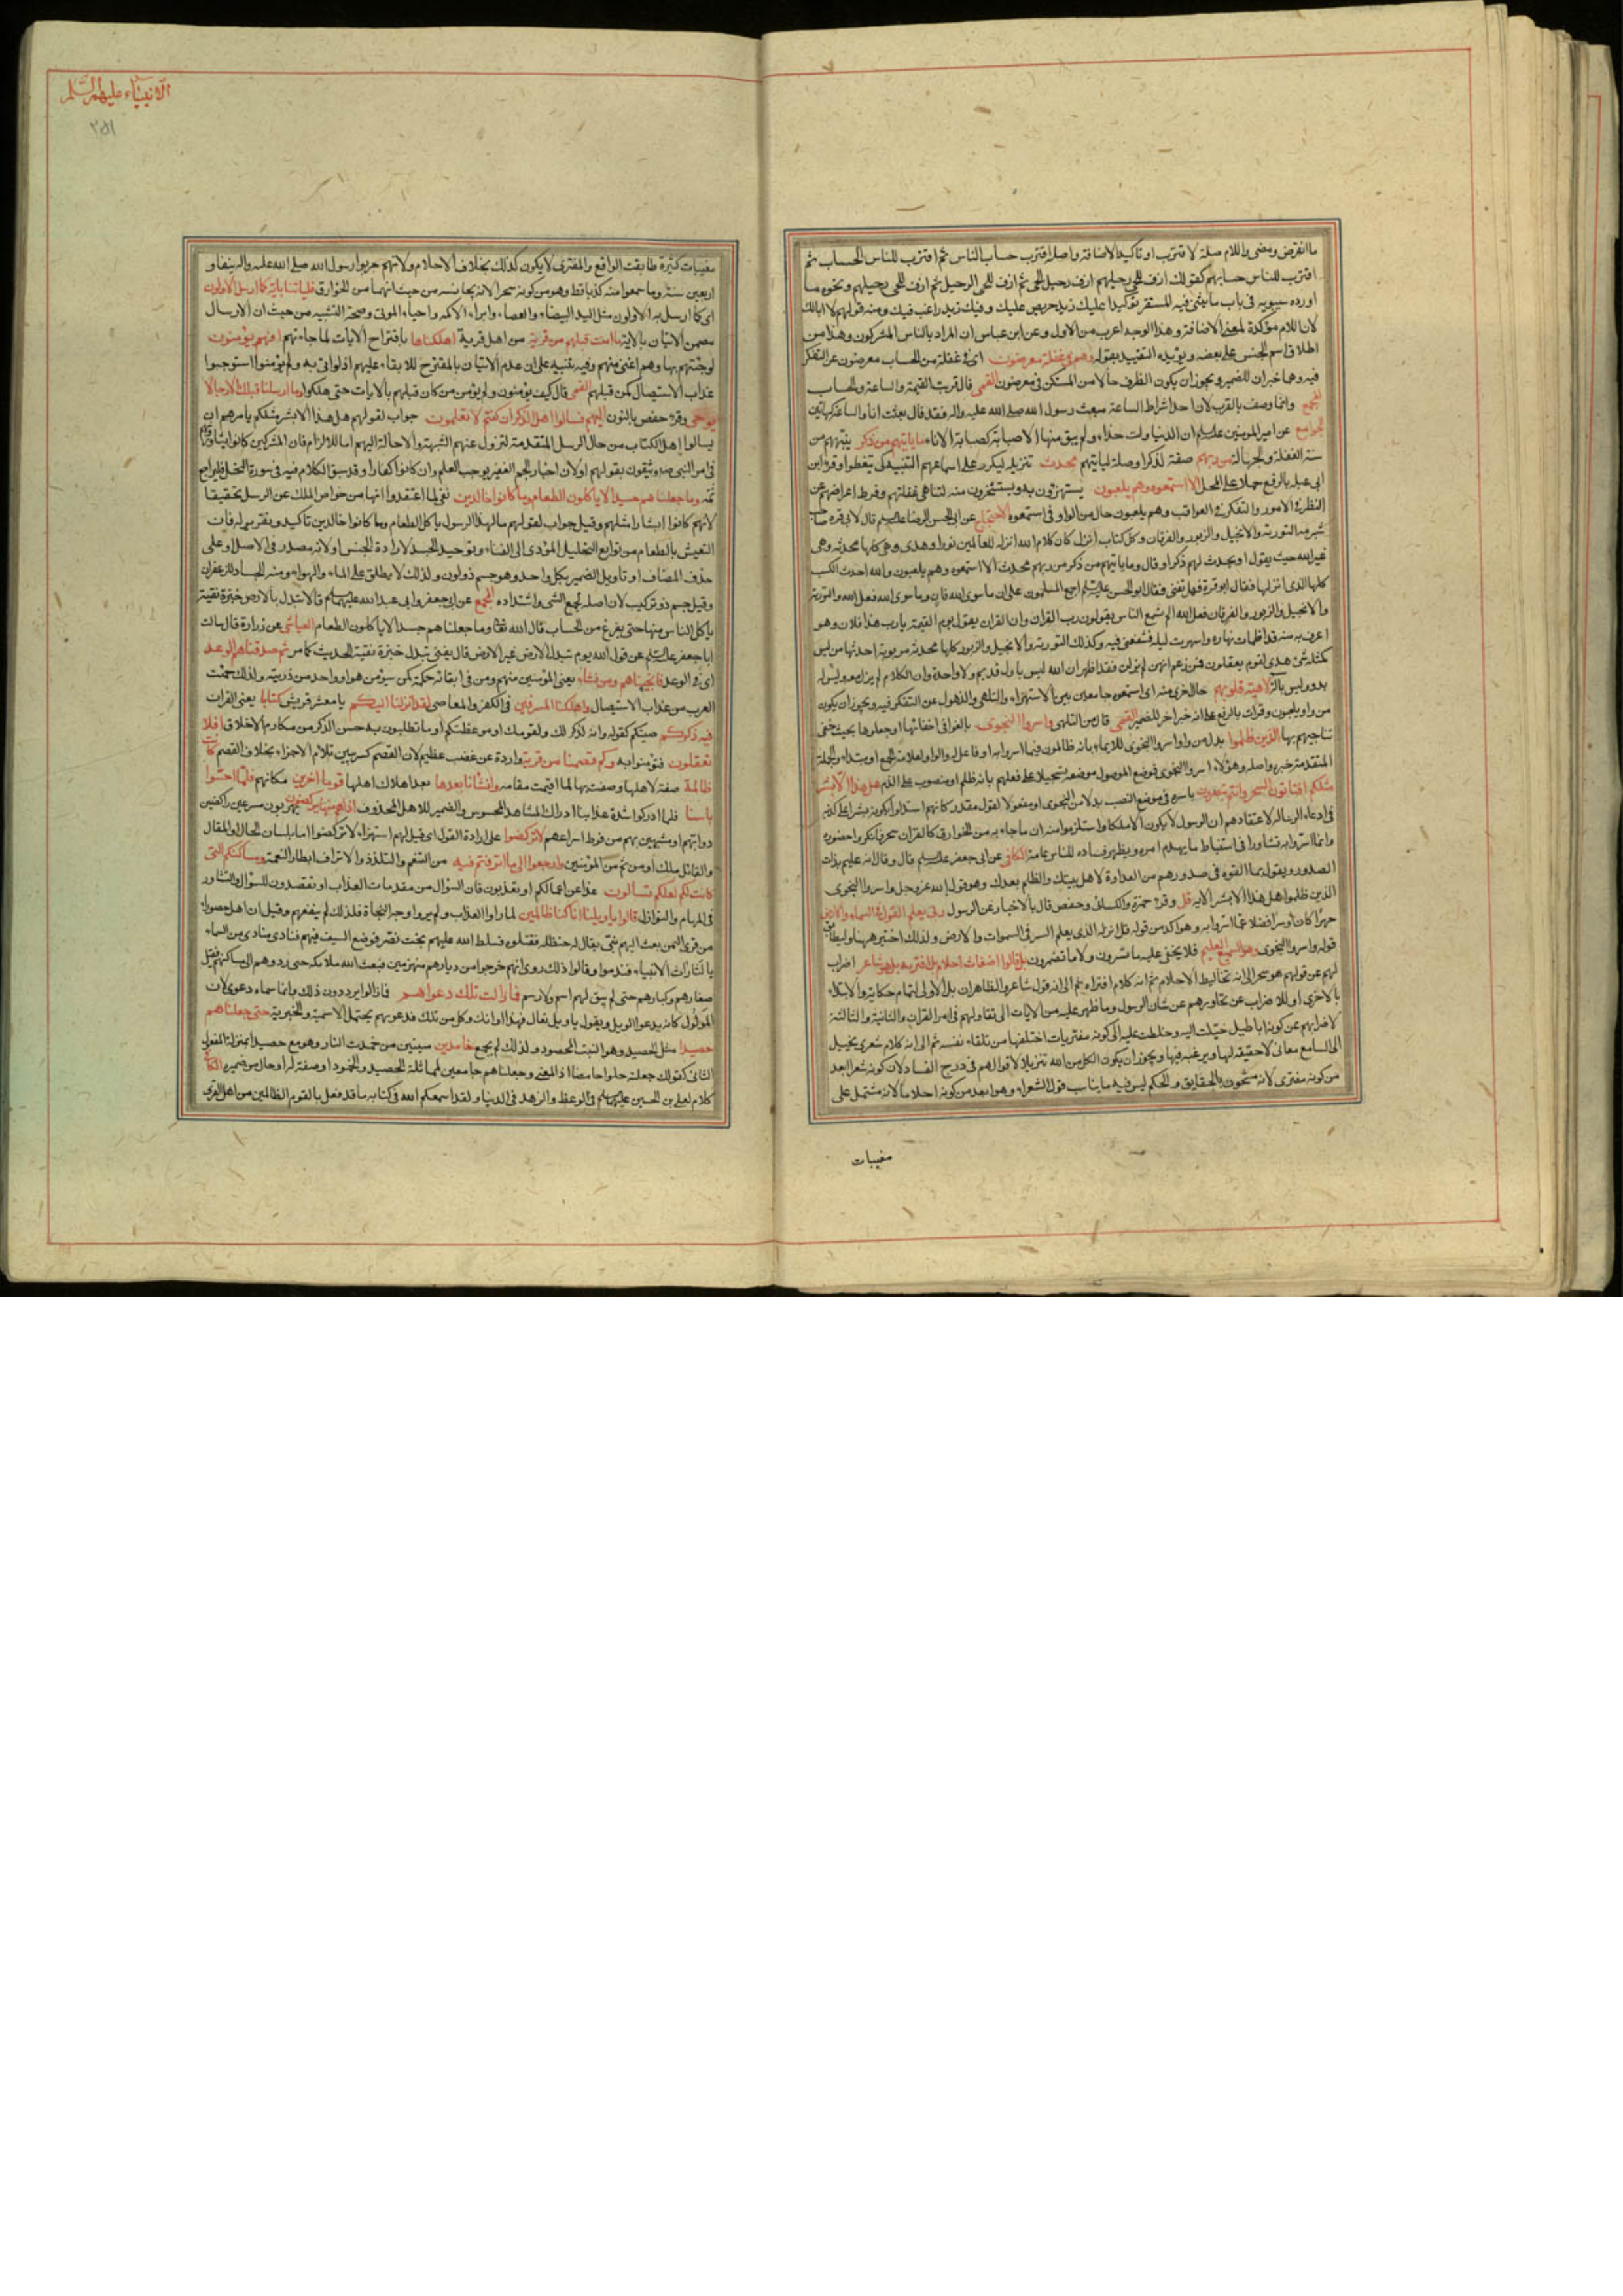 ما انقرض ومضى واللام صلة لاقترب او تاكيد الاضافة واصله اقترب حساب الناس ثم اقترب للناس الحساب ثم
اقترب للناس حسابهم كقولك ازف للحى رحيلهم ازف رحيل الحى ثم ازف للحى الرحيل ثم ازف للحى رحيلهم ونحوه ما
اورده سيبويه فى باب ما يثنى فيه المستقر توكيدا عليك زيد حريص عليك وفيك زيد راغب فيك ومنه قولهم لا ابالك
لان اللام مؤكدة لمعنى الاضافة وهذا الوجه اعرب من الاول وعن ابن عباس ان المراد بالناس المشركون وهذا من
اطلاق اسم الجنس على بعضه ويؤيده التقييد بقوله وهم فى غفلة معرضون اى فى غفلة من الحساب معرضون عن التفكر
فيه وهما خبران للضمير ويجوز ان يكون الظرف حالا من المستكن فى معرضون القمى قال قربت القيمة والساعة والحساب
المجمع وانما وصف بالقرب لان احد اشراط الساعة مبعث رسول الله صلى الله عليه واله فقد قال بعثت انا والساعة كهاتين
الجوامع عن امير المومنين عليه السلم ان الدنيا ولت حذاء ولم يبق منها الا صبابة كصبابة الاناء ما ياتيهم من ذكر ينبههم من
سنة الغفلة والجهالة من ربهم صفة لذكر او صلة لياتيهم محدث تنزيله ليكرر على اسماعهم التنبيه كى يتعظوا وقرأ ابن
ابى عبلة بالرفع حملا على المحل الا استمعوه وهم يلعبون يستهزؤن به ويستسخرون منه لتناهى غفلتهم وفرط اعراضهم عن
النظر فى الامور والتفكر فى العواقب وهم يلعبون حال من الواو فى استمعوه الاحتجاج عن ابى الحسن الرضا عليه السلم قال لابى قرة صاحب
شبرمة التورية والانجيل والزبور والفرقان وكل كتاب انزل كان كلام الله انزله للعالمين نورا وهدى وهى كلها محدثة وهى
غير الله حيث يقول او يحدث لهم ذكرا وقال وما ياتيهم من ذكر من ربهم محدث الا استمعوه وهم يلعبون والله احدث الكتب
كلها الذى انزلها فقال ابو قرة فهل تفنى فقال ابو الحسن عليه السلم اجمع المسلمون على ان ما سوى الله فان وما سوى الله فعل الله والتورية
والانجيل والزبور والفرقان فعل الله الم تسمع الناس يقولون رب القران وان القران يقول يوم القيمة يا رب هذا فلان وهو
اعرف به منه قد اظمات نهاره واسهرت ليله فشفعنى فيه وكذلك التورية والانجيل والزبور كلها محدثة مربوبة احدثها من ليس
كمثله شئ هدى لقوم يعقلون فمن زعم انهن لم يزلن فقد اظهر ان الله ليس باول قديم ولا واحد وان الكلام لم يزل معه وليس له
بدو وليس باله لاهية قلوبهم حال اخرى منه اى استمعوه جامعين بين الاستهزاء والتلهى والذهول عن التفكر فيه ويجوز ان يكون
من واو يلعبون وقرات بالرفع على انه خبر اخر للضمير القمى قال من التلهى واسروا النجوى بالغوا فى اخفائها او جعلوها بحيث خفى
تناجيهم بها الذين ظلموا بدل من واو اسروا النجوى للايماء بانه ظالمون فيما اسروا به او فاعل له والواو لعلامة الجمع او مبتداء والجملة
المتقدمة خبره واصله وهؤلاء اسروا النجوى فوضع الموصول موضعه تسجيلا على فعلهم بانه ظلم او منصوب على الذم هل هذا الا بشر
مثلكم افتاتون السحر وانتم تبصرون باسره فى موضع النصب بدلا من النجوى او مفعولا لقول مقدر كانهم استدلوا بكونه بشرا على كذبه
فى ادعاء الرسالة لاعتقادهم ان الرسول لا يكون الا ملكا واستلزموا منه ان ما جاء به من الخوارق كالقران سحر فانكروا حضوره
وانما اسروا به تشاورا فى استنباط ما يهدم امره ويظهر فساده للناس عامة الكافى عن ابى جعفر عليه السلم قال وقال انه عليم بذات
الصدور ويقول بما القوه فى صدورهم من العداوة لاهل بيتك والظلم بعدك وهو قول الله عز وجل واسروا النجوى
الذين ظلموا هل هذا الا بشر الاية قل وقرء حمزة والكسائى وحفص قال بالاخبار عن الرسول ربى يعلم القول فى السماء والارض
جهرا كان او سرا فضلا عما اسروا به وهو اكد من قوله قل انزله الذى يعلم السر فى السموات والارض ولذلك اختير ههنا وليطابق
قوله واسروا النجوى وهو السميع العليم فلا يخفى عليه ما تسرون ولا ما تضمرون بل قالوا اضغاث احلام بل افتريه بل هو شاعر اضراب
لهم عن قولهم هو سحر الى انه تخاليط الاحلام ثم انه كلام افتراه ثم الى انه قول شاعر والظاهر ان بل الاولى لتمام حكاية والابتداء
بالاخرى او للاضراب عن تحاورهم عن شان الرسول وما ظهر عليه من الايات الى تقاولهم فى امر القران والثانية والثالثة
لاضرابهم عن كونه اباطيل خيلت اليه وخلطت عليه الى كونه مفتريات اختلقها من تلقاء نفسه ثم الى انه كلام شعرى يخيل
الى السامع معانى لا حقيقة لها ويرغبه فيها ويجوز ان يكون الكل من الله تنزيلا لاقوالهم فى درج الفساد لان كونه شعرا ابعد
من كونه مفترى لانه مشحون بالحقايق والحكم ليس فيه ما يناسب قول الشعراء وهو ابعد من كونه احلاما لانه مشتمل على
مغيبات
الانبياء عليهم السلم
٢٥١
مغيبات كثيرة طابقت الواقع والمفترى لا يكون كذلك بخلاف الاحلام ولانهم جربوا رسول الله صلى الله عليه واله نيفا و
اربعين سنة وما سمعوا منه كذبا قط وهو من كونه سحرا لانه يجانسه من حيث انهما من الخوارق فلياتنا باية كما ارسل الاولون
اى كما ارسل به الاولون مثل اليد البيضاء والعصاء وابراء الاكمه واحياء الموتى وصحة التشبيه من حيث ان الارسال
يتضمن الاتيان بالاية ما امنت قبلهم من قرية من اهل قرية اهلكناها باقتراح الايات لما جاءتهم افهم يؤمنون
لو جئتهم بها وهم اعتى منهم وفيه تنبيه على ان عدم الاتيان بالمقترح للابقاء عليهم اذ لو اتى به ولم يؤمنوا استوجبوا
عذاب الاستيصال كمن قبلهم القمى قال كيف يؤمنون ولم يؤمن من كان قبلهم بالايات حتى هلكوا وما ارسلنا قبلك الا رجالا
يوحى وقرء حفص بالنون اليهم فسالوا اهل الذكر ان كنتم لا تعلمون جواب لقولهم هل هذا الا بشر مثلكم يامرهم ان
يسالوا اهل الكتاب من حال الرسل المتقدمة لتزول عنهم الشبهة والاحالة اليهم اما للالزام فان المشركين كانوا يشاورونهم
فى امر النبى ص ويثقون بقولهم او لان اخبار الجم الغفير يوجب العلم وان كانوا كفارا وقد سبق الكلام فيه فى سورة النحل فليراجع
ثمه وما جعلناهم جسدا لا ياكلون الطعام وما كانوا خالدين نفى لما اعتقدوا انها من خواص الملك عن الرسل تحقيقا
لانهم كانوا ابشارا مثلهم وقيل جواب لقولهم ما لهذا الرسول ياكل الطعام وما كانوا خالدين تاكيد وتقرير له فان
التعيش بالطعام من توابع التحليل المؤدى الى الفناء وتوحيد الجسد لارادة الجنس او لانه مصدر فى الاصل او على
حذف المضاف او تاويل الضمير بكل واحد وهو جسم ذو لون ولذلك لا يطلق على الماء والهواء ومنه الجساد للزعفران
وقيل جسم ذو تركيب لان اصله لجمع الشى واشتداده المجمع عن ابى جعفر وابى عبد الله عليهما السلم قالا تبدل بالارض خبزة نقية
ياكل الناس منها حتى يفرغ من الحساب قال الله تعالى وما جعلناهم جسدا لا ياكلون الطعام العياشى عن زرارة قال سالت
ابا جعفر عليه السلم عن قول الله يوم تبدل الارض غير الارض قال يعنى تبدل خبزة نقية الحديث كما مر ثم صدقناهم الوعد
اى فى الوعد فانجيناهم ومن نشاء يعنى المؤمنين منهم ومن فى ابقائه حكمة كمن سيؤمن هو او واحد من ذريته ولذلك حميت
العرب من عذاب الاستيصال واهلكنا المسرفين فى الكفر والمعاصى لقد انزلنا اليكم يا معشر قريش كتابا يعنى القران
فيه ذكركم صيتكم كقوله وانه لذكر لك ولقومك او موعظتكم او ما تطلبون به حسن الذكر من مكارم الاخلاق افلا
تعقلون فتؤمنوا به وكم قصمنا من قرية واردة عن غضب عظيم لان القصم كسر يبين تلاؤم الاجزاء بخلاف الفصم كانت
ظالمة صفة لاهلها وصفت بها لما اقيمت مقامه وانشانا بعدها بعد اهلاك اهلها قوما اخرين مكانهم فلما احسوا
باسنا فلما ادركوا شدة عذابنا ادراك المشاهد المحسوس والضمير للاهل المحذوف اذا هم منها يركضون يهربون مسرعين راكضين
دوابهم او مشبهين بهم من فرط اسراعهم لا تركضوا على ارادة القول اى قيل لهم استهزاء لا تركضوا اما بلسان الحال او المقال
والقائل ملك او من ثم من المؤمنين وارجعوا الى ما اترفتم فيه من التنعم والتلذذ والاتراف ابطار النعمة ومساكنكم التى
كانت لكم لعلكم تسالون غدا عن اعمالكم او تعذبون فان السؤال من مقدمات العذاب او تقصدون للسؤال والتشاور
فى المهام والنوازل قالوا يا ويلنا انا كنا ظالمين لما راوا العذاب ولم يروا وجه النجاة فلذلك لم ينفعهم وقيل ان اهل حصورا
من قرى اليمن بعث اليهم نبى يقال له حنظلة فقتلوه فسلط الله عليهم بخت نصر فوضع السيف فيهم فنادى منادى من السماء
يا لثارات الانبياء فندموا وقالوا ذلك روى انهم خرجوا من ديارهم منهزمين فبعث الله ملائكة حتى ردوهم الى مساكنهم فقتل
صغارهم وكبارهم حتى لم يبق لهم اسم ولا رسم فما زالت تلك دعواهم فما زالوا يرددون ذلك وانما سماه دعوى لان
المولول كانه يدعو الويل ويقول يا ويل تعال فهذا اوانك وكل من تلك ودعويهم يحتمل الاسمية والخبرية حتى جعلناهم
حصيدا مثل الحصيد وهو النبت المحصود ولذلك لم يجمع خامدين ميتين من خمدت النار وهو مع حصيدا بمنزلة المفعول
الثانى كقولك جعلته حلوا حامضا اذ المعنى وجعلناهم جامعين لمماثلة الحصيد والخمود او صفة له او حال من ضميره الكافى
كلام لعلى بن الحسين عليهما السلم فى الوعظ والزهد فى الدنيا ولقد اسمعكم الله فى كتابه ما قد فعل بالقوم الظالمين من اهل القرى